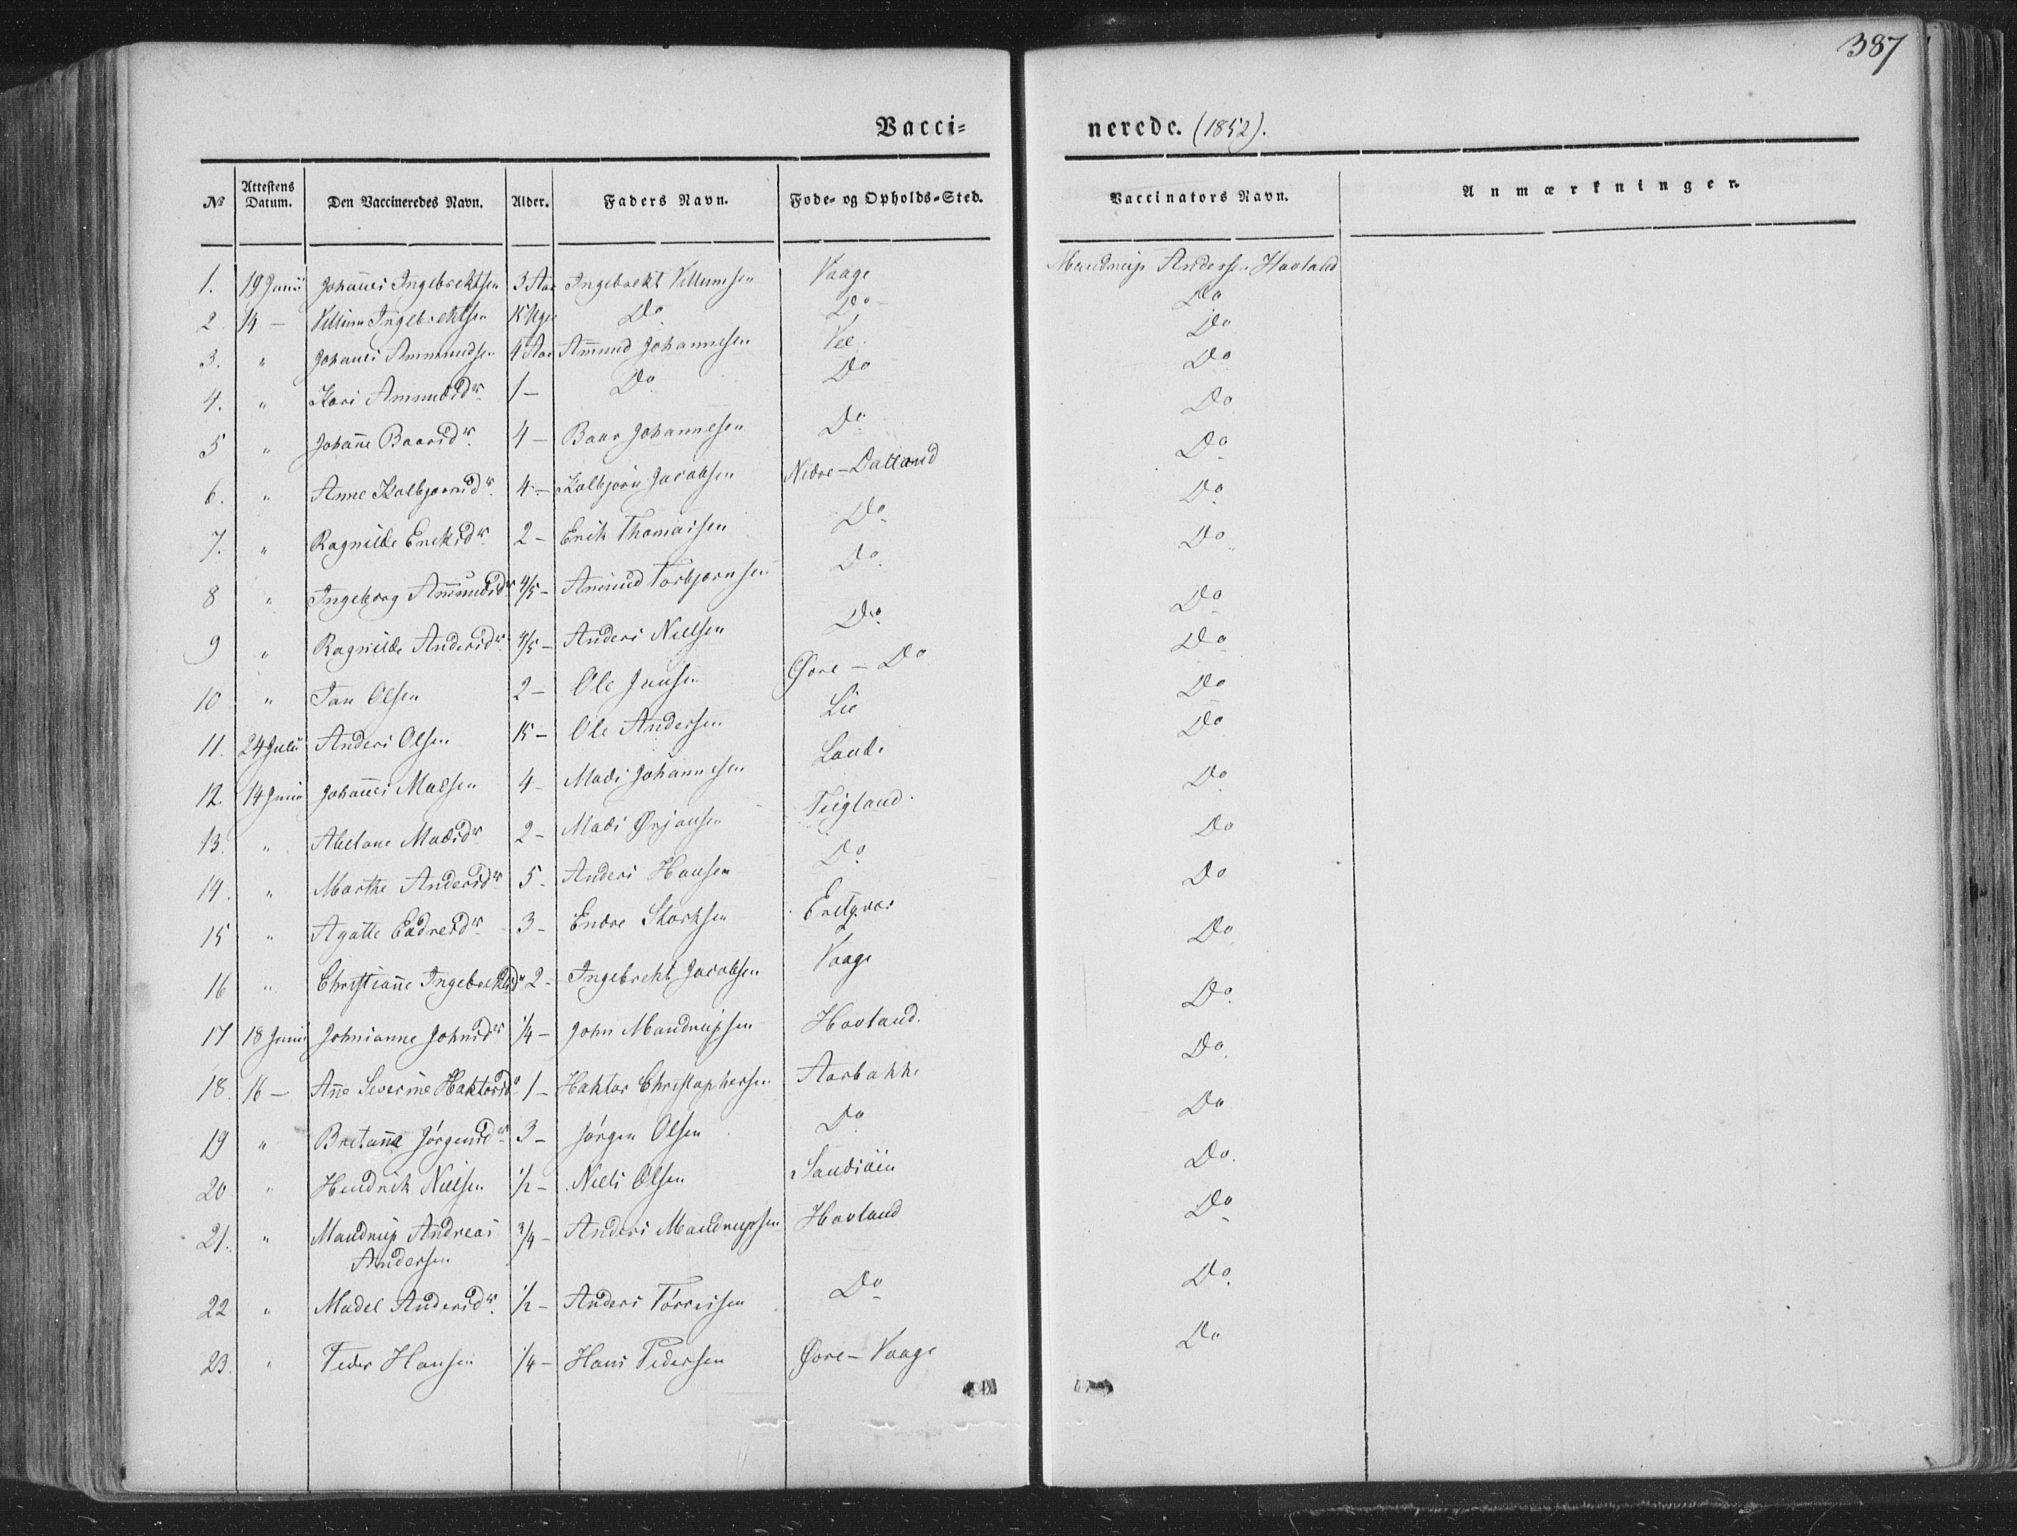 387
Vacci=
nerede. (1852).
№ Attestens Datum. Den Vaccineredes Navn. Alder. Faders Navn. Føde- og Opholds-Sted. Vaccinators Navn. Anmærkninger.
1. 19 Junii Johannes Ingebrektsen 3 Aar Ingebrekt Villumsen Vaage Mandrup Andersen Hovland
2. 14 — Villum Ingebrektsen Do Do Do
3. " Johanes Ammundsen 4 Aar Amund Johannesen Vee. Do
4. " Kari Amundsdr. 1 — Do Do Do
5 " Johane Baarsdr. 4 — Baar Johannesen Do Do
6. " Anne Kolbjørnsdr. 4 — Kolbjørn Jacobsen Nedre-Dalland Do
7. " Ragnilde Eriksdr. 2 — Erik Thomassen Do Do
8 " Ingeborg Ammundsdr. 4/5 — Amund Torbjørnsen Do Do
9 " Ragnilde Andersdr. 4/5 — Anders Nielsen Do Do
10 " Jan Olsen 2 — Ole Jansen Øvre — Do Do
11. 24 Julii Anders Olsen — Ole Andersen Lie Do
12. 14 Junii Johannes Madsen 4 — Mads Johannesen Lande Do
13. " Abelone Madsdr. 2 — Mads Ørjansen Teigland. Do
14. " Marthe Andersdr. 5. Anders Hansen Do Do
15 " Agatte Endresdr. 3 — Endre Storksen Do
16 " Christiane Ingebrektsdr 2 — Ingebrekt Jacobsen Vaage Do
17 18 Junii Johnianne Johnsdr. 1/4 — John Mandrupsen Hovland. Do
18. 16 — Ane Severine Haktorsd 1 — Haktor Christophersen Aarbakke Do
19 " Bretanna Jørgensdr. 3 — Jørgen Olsen Do Do
20 " Hendrik Nielsen 1/2 — Niels Olsen Do.
21. " Mandrup Andreas 3/4 — Anders Mandrupsen Hovland Do
Andersen
22 " Madel Andersdr. 1/2 — Anders Tørresen Do Do
23. " Peder Hansen 1/4 — Hans Pedersen Øvre-Vaage Do